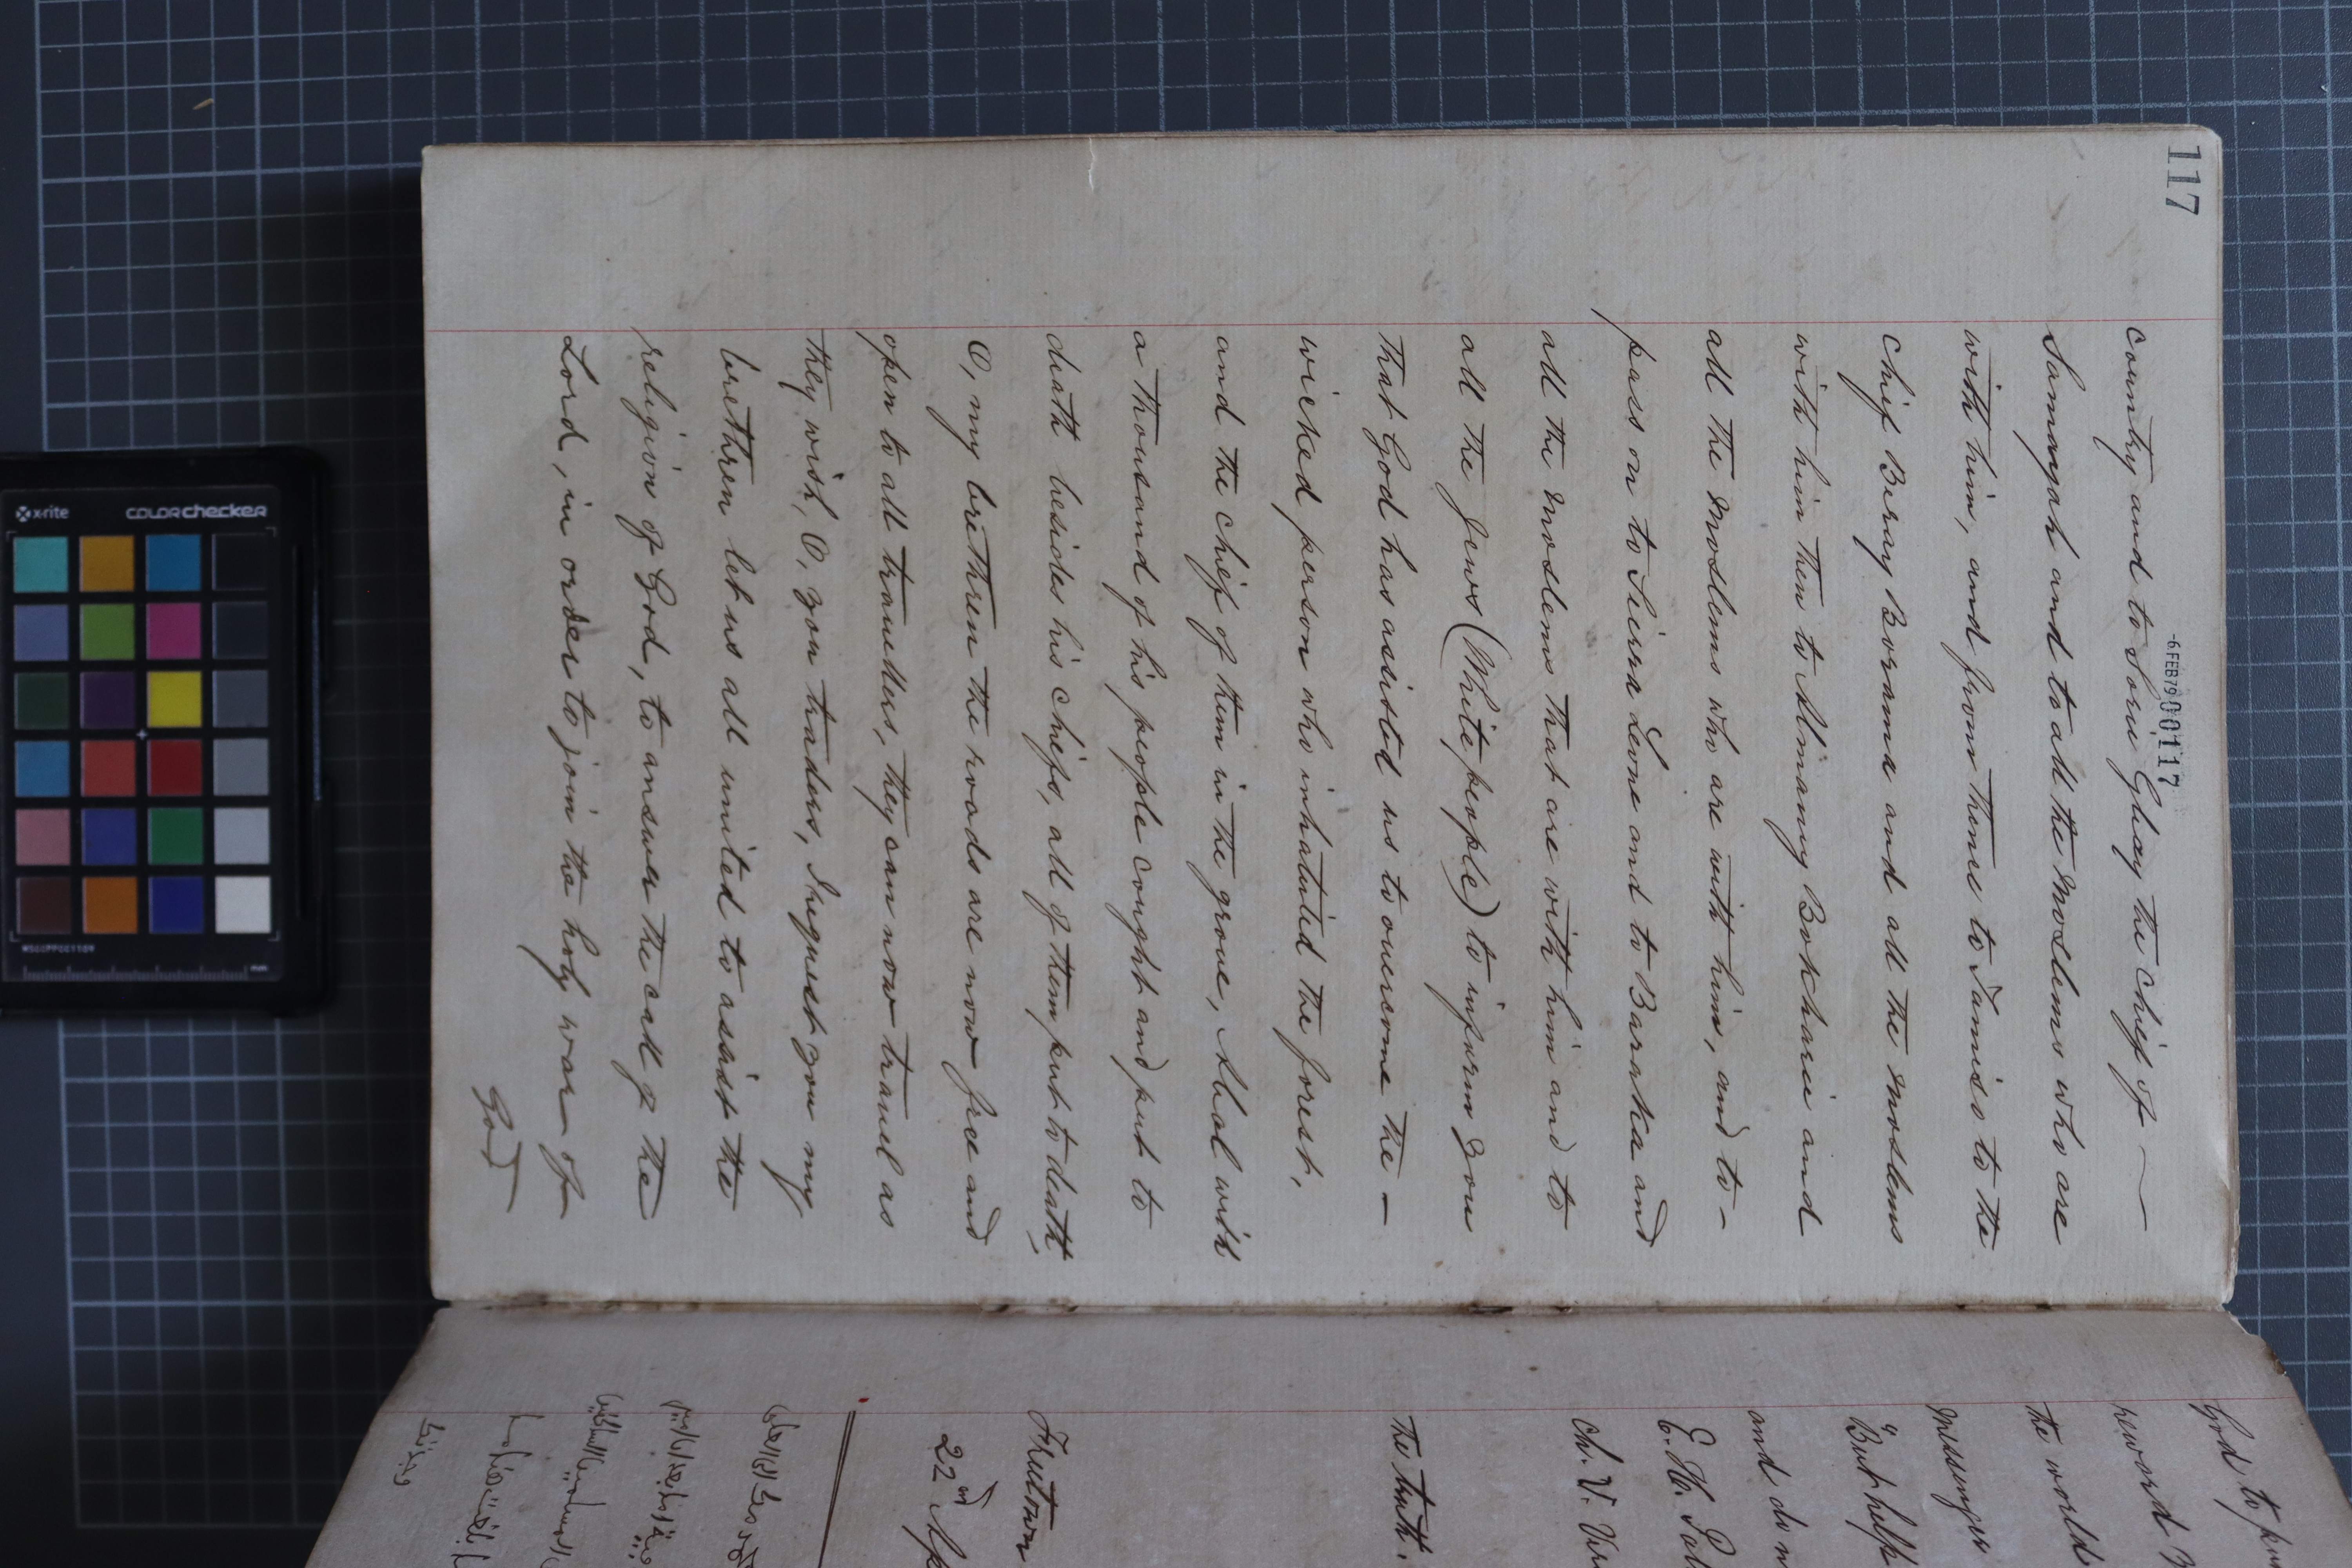 117
-6 FEB 79 00117
country and to Sorie Ghay the chief of —
Samayah and to all the Moslems who are
with him, and from thence to Tamiso to the
chief Beray Borama and all the Moslems
with him then to Almamy Bokharie and
all the Moslems who are with him, and to –
pass on to Sierra Leone and to Baraka and
all the Moslems that are with him and to
all the Jews (White people) to inform you
that God has assisted us to overcome the –
wicked person who inhabited the forest,
and the chief of them in the grove, Abal with
a thousand of his people cought and put to
death besides his chiefs, all of them put to death,
O, my brethren the roads are now free and
open to all travellers, they can now travel as
they wish, O, you traders, I request you my
brethren let us all united to assist the
religion of God, to answer the call of the
Lord, in order to join the holy war of
God
God to
reward
the world
messenger
But help
and do n
E. H.
Ch. V.
the truth.
Freetown
22nd Ap
x-rite colorchecker
mm